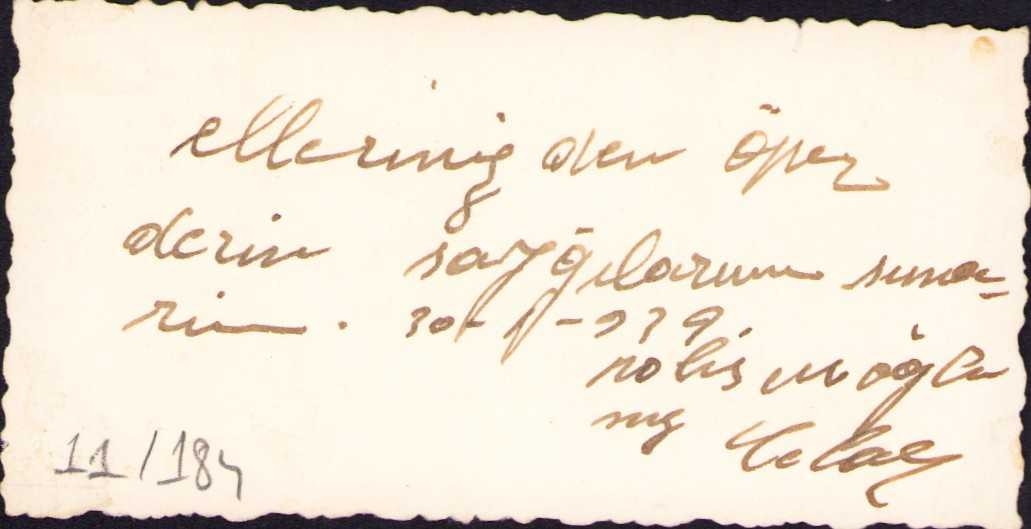 elleriniz den öper
derin sayğılarımı suna-
rım. 30-1-939
oğlu
nuz Celal
11/184